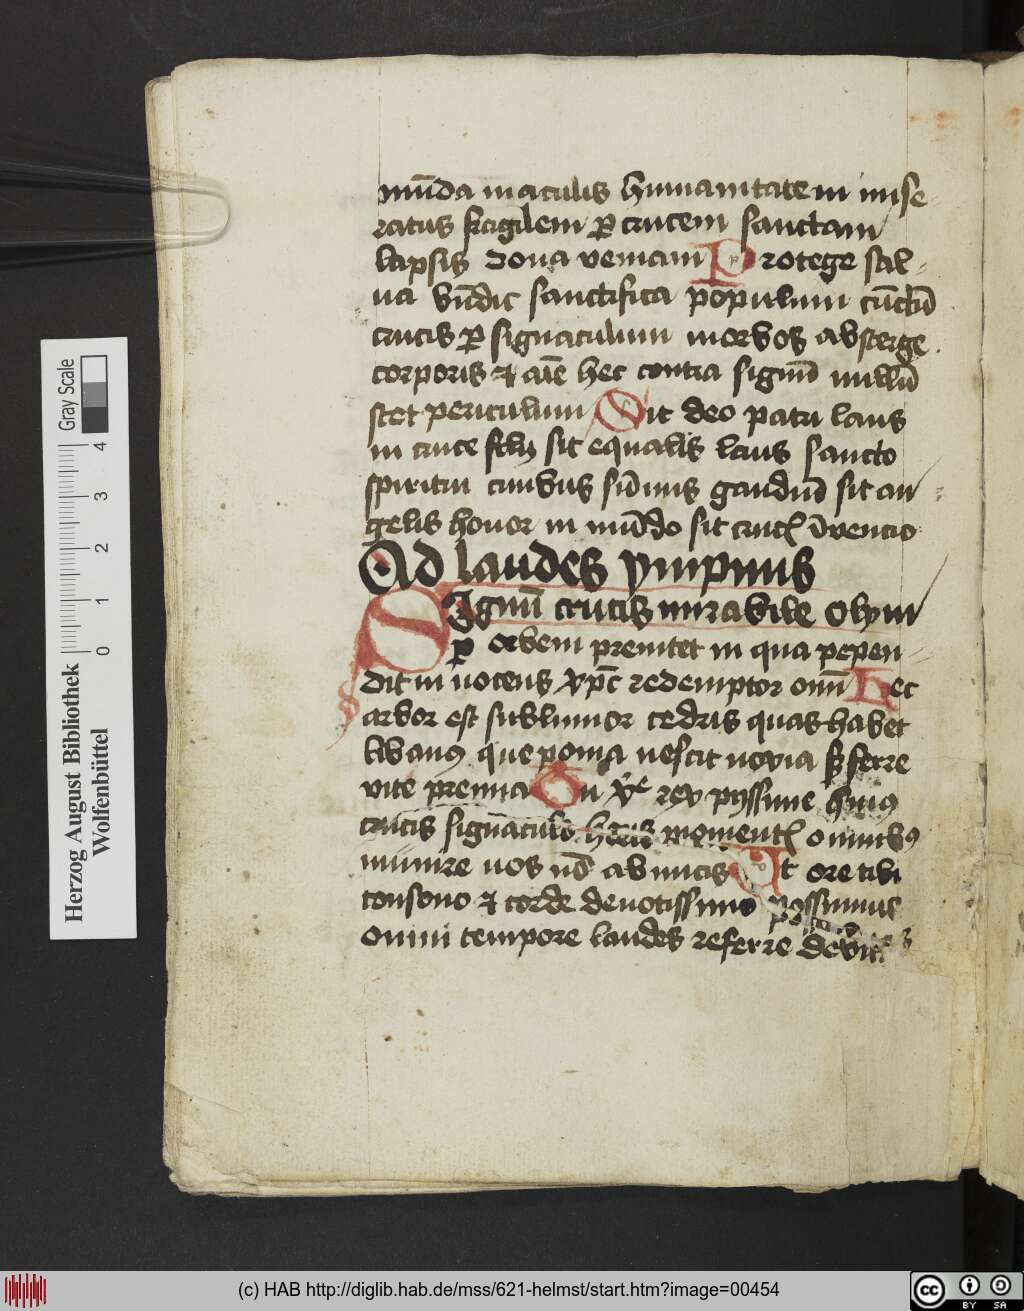 mūda maculis humanitatem mise
ratus fragilem ꝑ crucem sanctam
lapsis dona veniam Protege sal-
ua bn̄dic sanctifica populum cūctū
crucis ꝑ signaculum morbos absterge
corporis ⁊ aīe hec contra signū nullū
stet periculum Sit deo patri laus
in cruce filij sit equalis laus sancto
spiritui ciuibus sūmis gaudiū sit an-
gelis honor in mūdo sit crucꝭ īvencio
Ad laudes ympnus
Signū crucis mirabile olym
ꝑ orbem prenitet in qua pepen-
dit in nocens xp̄c redemptor om̄ Hec
arbor est sublimior cedris quas habet
libanꝰ que poma nescit noxia sꝫ ferre
vite premia Tu xp̄e rex pyssime huiꝰ
crucis signaculo horis momentꝭ omnibꝰ
munire nos nō abnuas Ut ore tibi
consono ⁊ corde deuotissimo possimus
omni tempore laudes referre debitas
Herzog August Bibliothek
Wolfenbüttel
Gray Scale
0 1 2 3 4
(c) HAB http://diglib.hab.de/mss/621-helmst/start.htm?image=00454
cc BY SA